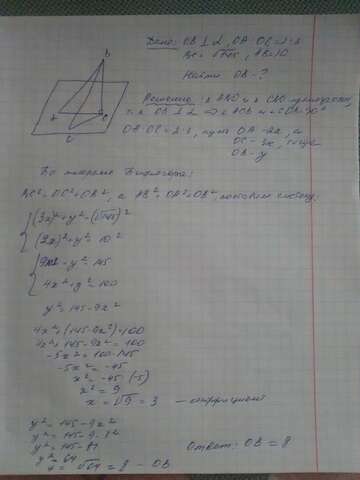 Дано: OB ⊥ α, OA : OC = 2:3
BC = √145, AB = 10
Найти OB - ?
Решение:
т.к. OB ⊥ α
OA:OC = 2:3, пусть OA - 2x, а
OC - 3x, тогда
OB - y
По теореме Пифагора:
BC² = OC² + OB², а AB² = OA² + OB², составим систему:
(3x)² + y² = (√145)²
(2x)² + y² = 10²
9x² + y² = 145
4x² + y² = 100
y² = 145 - 9x²
4x² + (145 - 9x²) = 100
4x² + 145 - 9x² = 100
-5x² = 100 - 145
-5x² = -45
x² = -45 : (-5)
x² = 9
x = √9 = 3 — коэффициент
y² = 145 - 9x²
y² = 145 - 9·3²
y² = 145 - 81
y² = 64
y = √64 = 8 - OB
Ответ: OB = 8